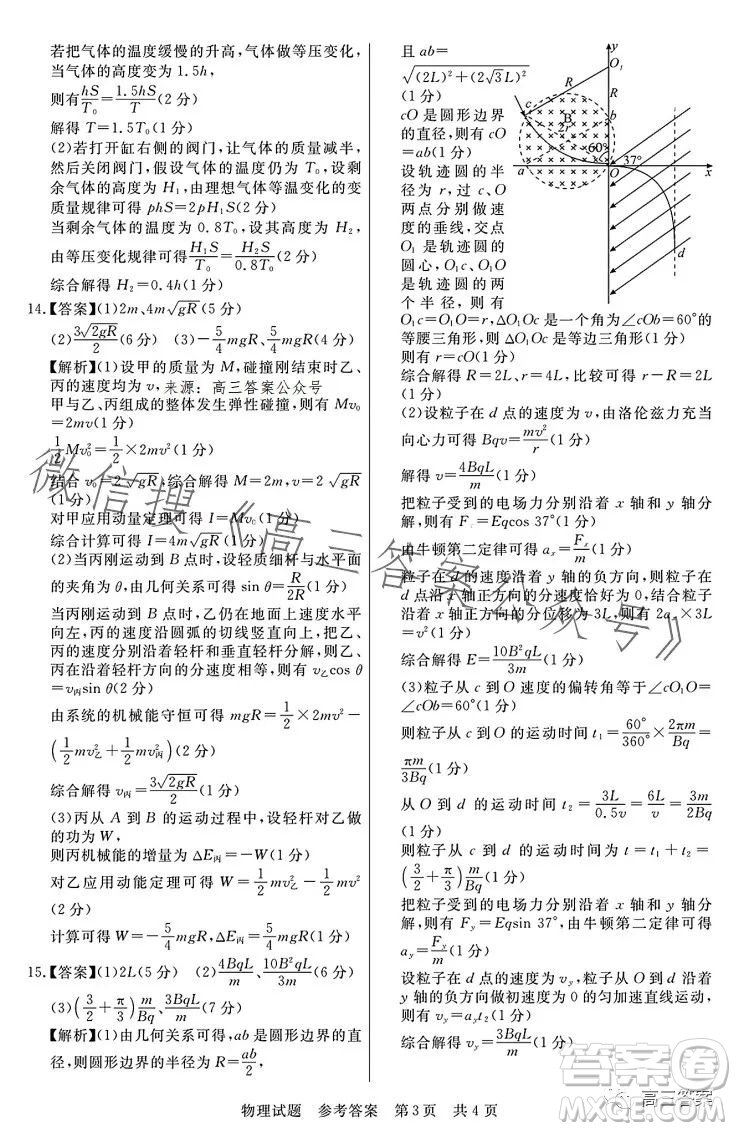 若把气体的温度缓慢的升高,气体做等压变化,
当气体的高度变为 1.5h,
则有hS/T₀=1.5hS/T(2 分)
解得 T=1.5T₀(1 分)
(2)若打开缸右侧的阀门,让气体的质量减半,
然后关闭阀门,假设气体的温度仍为 T₀,设剩
余气体的高度为 H₁,由理想气体等温变化的变
质量规律可得 phS=2pH₁S(2 分)
当剩余气体的温度为 0.8T₀,设其高度为 H₂,
由等压变化规律可得H₁S/T₀=H₂S/0.8T₀(2 分)
综合解得 H₂=0.4h(1 分)
14.【答案】(1)2m、4m√gR(5 分)
(2)3√2gR/2(6 分) (3)-5/4mgR、5/4mgR(4 分)
【解析】(1)设甲的质量为 M,碰撞刚结束时乙、
丙的速度均为 v,来源:高三答案公众号
甲与乙、丙组成的整体发生弹性碰撞,则有 Mv₀
=2mv(1 分)
1/2Mv₀²=1/2×2mv²(1 分)
结合 v₀=2√gR,综合解得 M=2m,v=2√gR
(1 分)
对甲应用动量定理可得 I=Mv₀(1 分)
综合计算可得 I=4m√gR(1 分)
(2)当丙刚运动到 B 点时,设轻质细杆与水平面
的夹角为 θ,由几何关系可得 sin θ=R/2R(1 分)
当丙运动到 B 点时,乙仍在地面上速度水平
向左,丙的速度沿圆弧的切线竖直向上,把乙、
丙的速度分别沿着轻杆和垂直轻杆分解,则
乙、丙在沿着轻杆方向的分速度相等,则有 v乙cos θ
=v丙sin θ(2 分)
由系统的机械能守恒可得 mgR=1/2×2mv²-
(1/2mv乙²+1/2mv丙²)(1 分)
综合解得 v丙=3√2gR/2(1 分)
(3)丙从 A 到 B 的运动过程中,设轻杆对乙做
的功为 W,
则丙机械能的增量为 ΔE丙=-W(1 分)
对乙应用动能定理可得 W=1/2mv乙²-1/2mv²
(2 分)
计算可得 W=-5/4mgR、ΔE丙=5/4mgR(1 分)
15.【答案】(1)2L(5 分) (2)4BqL/m、10B²qL/3m(6 分)
(3)(3/2+π/3)m/Bq、3BqL/m(7 分)
【解析】(1)由几何关系可得,ab 是圆形边界的直
径,则圆形边界的半径为 R=ab/2,
且 ab=
√(2L)²+(2√3L)²
(1 分)
cO 是圆形边界
的直径,则有 cO
=ab(1 分)
设轨迹圆的半
径为 r,过 c、O
两点分别做速
度的垂线,交点
O₁ 是轨迹圆的
圆心,O₁c、O₁O
是轨迹圆的两
个半径,则有
y
O₁
R
R
c
B
2r
b
60°
37°
a
O
x
d
O₁c=O₁O=r,ΔO₁Oc 是一个角为∠cOb=60°的
等腰三角形,即 ΔO₁Oc 是等边三角形(1 分)
则有 r=cO(1 分)
综合解得 R=2L、r=4L,比较可得 r-R=2L
(1 分)
(2)设粒子在 d 点的速度为 v,由洛伦兹力充当
向心力可得 Bqv=mv²/r(1 分)
解得 v=4BqL/m(1 分)
把粒子受到的电场力分别沿着 x 轴和 y 轴分
解,则有 Fₓ=Eqcos 37°(1 分)
由牛顿第二定律可得 aₓ=Fₓ/m(1 分)
粒子在 d 的速度沿着 y 轴的负方向,则粒子在
d 点沿 x 轴正方向的分速度恰好为 0,结合粒子
沿着 x 轴正方向的分位移为 3L,则有 2aₓ×3L
=v²(1 分)
综合解得 E=10B²qL/3m(1 分)
(3)粒子从 c 到 O 速度的偏转角等于∠cO₁O=
∠cOb=60°(1 分)
则粒子从 c 到 O 的运动时间 t₁=60°/360°×2πm/Bq=
πm/3Bq(1 分)
从 O 到 d 的运动时间 t₂=3L/0.5v=6L/v=3m/2Bq
(1 分)
则粒子从 c 到 d 的运动时间为 t=t₁+t₂=
(3/2+π/3)m/Bq(1 分)
把粒子受到的电场力分别沿着 x 轴和 y 轴分
解,则有 Fᵧ=Eqsin 37°,由牛顿第二定律可得
aᵧ=Fᵧ/m(1 分)
设粒子在 d 点的速度为 vᵧ,粒子从 O 到 d 沿着
y 轴的负方向做初速度为 0 的匀加速直线运动,
则有 vᵧ=aᵧt₂(1 分)
综合解得 vᵧ=3BqL/m(1 分)
物理试题 参考答案 第3页 共4页
微信搜《高三答案公众号》
答案卷
高三答案
MXQE.COM